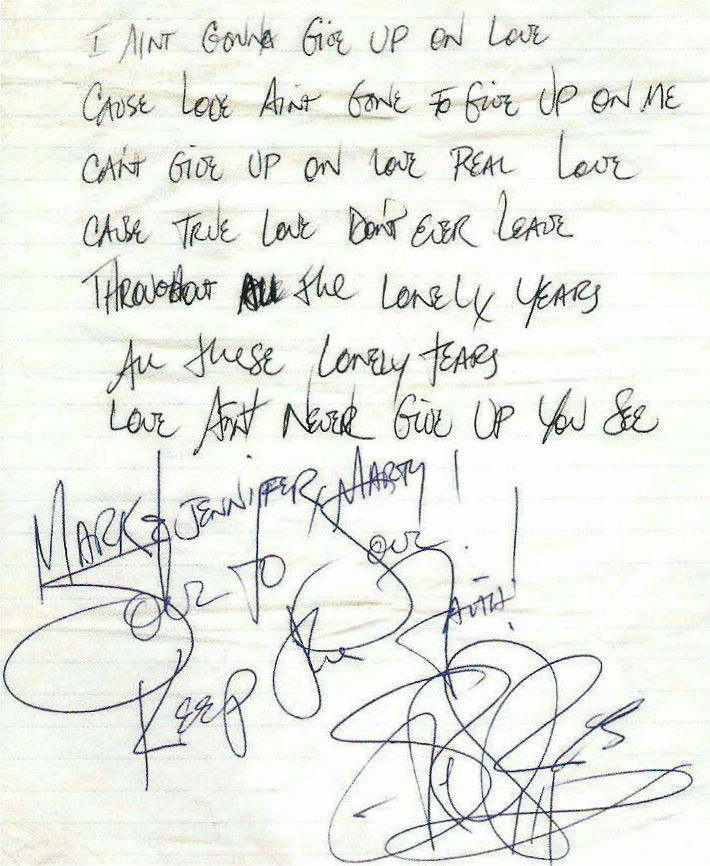 I AINT GONNA GIVE UP ON LOVE
CAUSE LOVE AINT GONE TO GIVE UP ON ME
CAN'T GIVE UP ON LOVE REAL LOVE
CAUSE TRUE LOVE DON'T EVER LEAVE
THROUGHOUT ALL the LONELY YEARS
All these LONELY TEARS
LOVE AIN'T NEVER GIVE UP YOU SEE
MARK & JENNIFER & MARTY!
SOUL TO SOUL!
KEEP the FAITH!